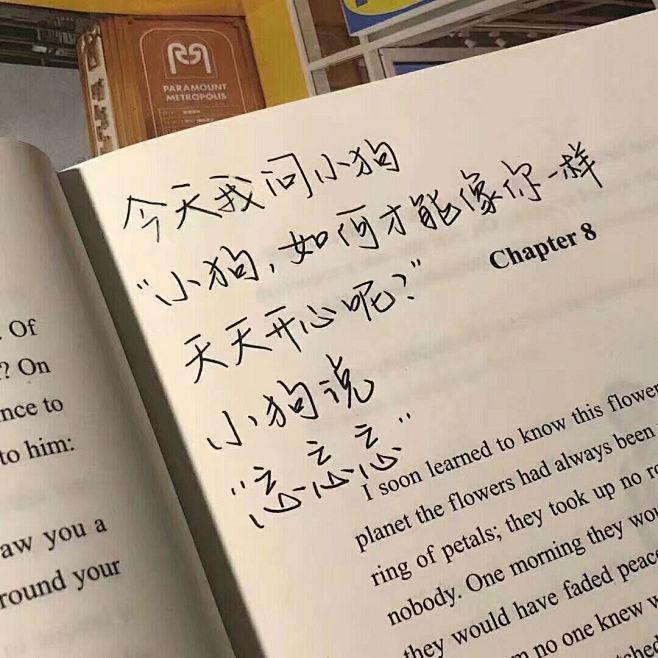 PARAMOUNT
METROPOLIS
今天我问小狗
"小狗,如何才能像你一样
天天开心呢?"
小狗说
"忘忘忘"
. Of
? On
nce to
to him:
aw you a
round your
Chapter 8
I soon learned to know this flower
planet the flowers had always been
ring of petals; they took up no
nobody. One morning they
they would have faded
no one knew